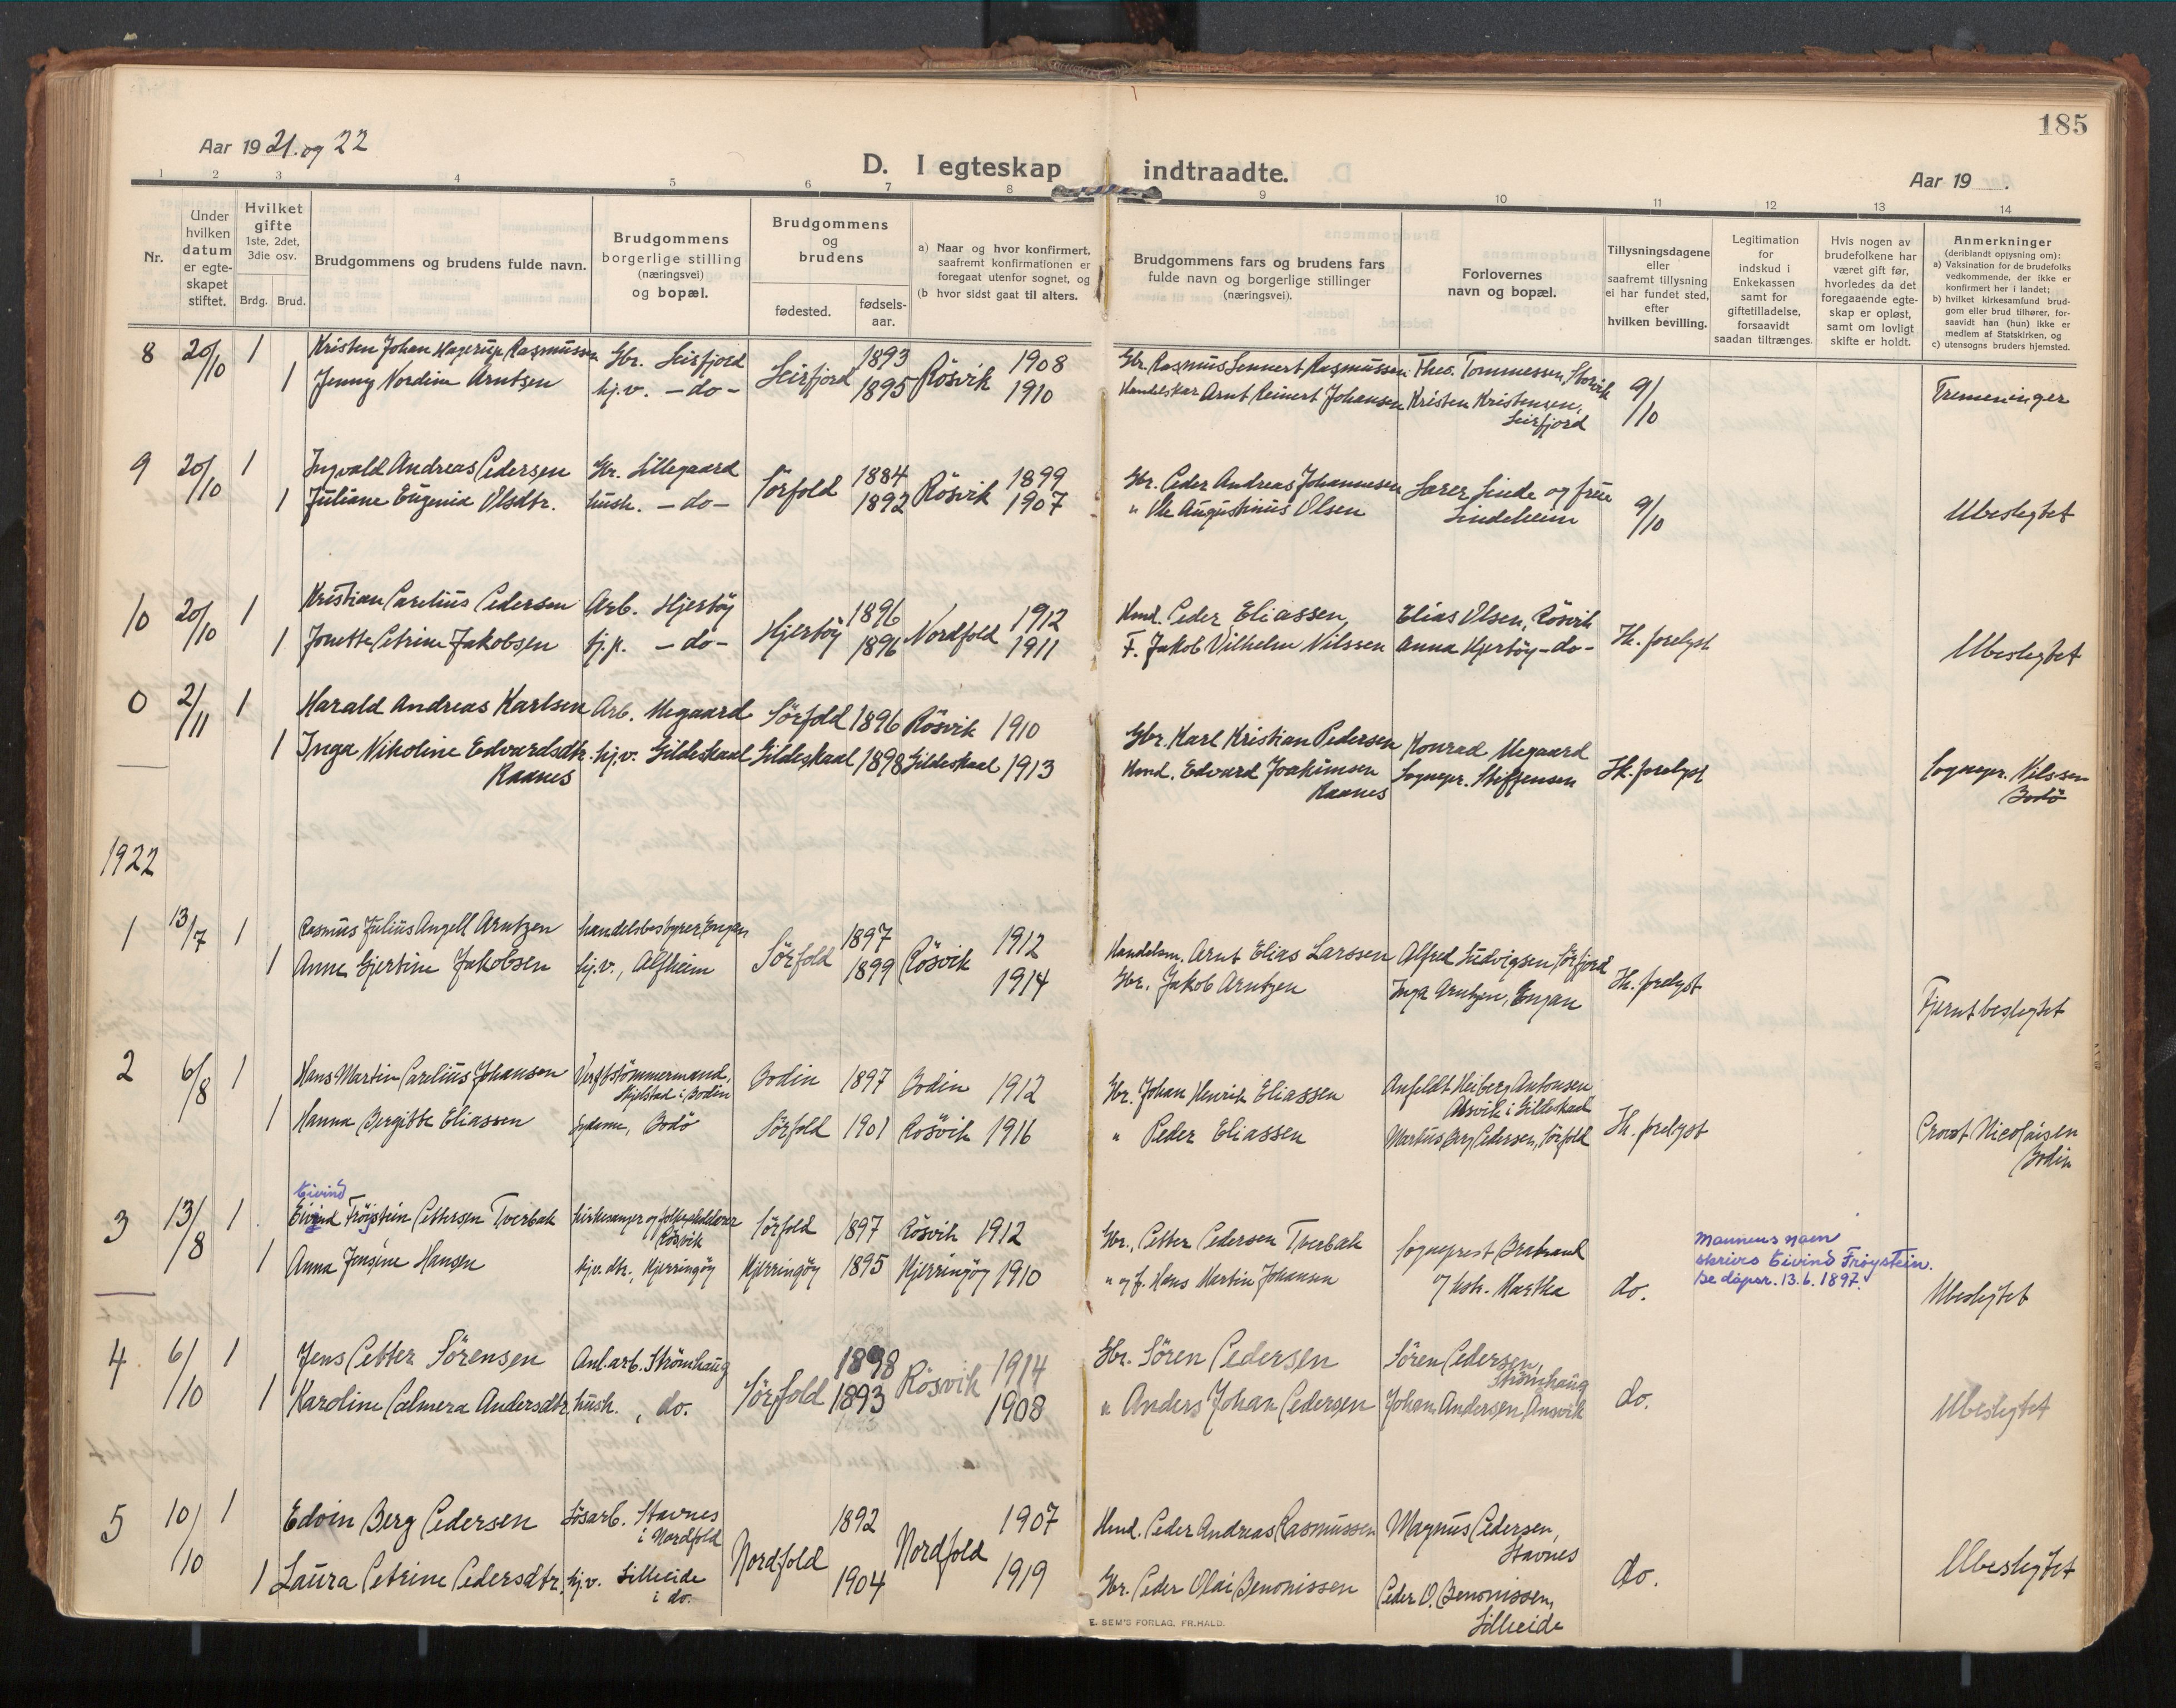 185
Aar 1921. og 22
D. I egteskap indtraadte.
Aar 19 .
1 2 3 4 5 6 7 8 9 10 11 12 13 14
Nr.
Under hvilken datum er egte-skapet stiftet.
Hvilket gifte 1ste, 2det, 3die osv.
Brdg. Brud.
Brudgommens og brudens fulde navn.
Brudgommens borgerlige stilling (næringsvei) og bopæl.
Brudgommens og brudens
fødested.
fødsels-aar.
a) Naar og hvor konfirmert, saafremt konfirmationen er foregaat utenfor sognet, og
(b hvor sidst gaat til alters.
Brudgommens fars og brudens fars fulde navn og borgerlige stillinger (næringsvei).
Forlovernes navn og bopæl.
Tillysningsdagene eller saafremt tillysning ei har fundet sted, efter hvilken bevilling.
Legitimation for indskud i Enkekassen samt for giftetilladelse, forsaavidt saadan tiltrænges.
Hvis nogen av brudefolkene har været gift før, hvorledes da det foregaaende egte-skap er opløst, samt om lovligt skifte er holdt.
Anmerkninger
(deriblandt opjysning om):
a) Vaksination for de brudefolks vedkommende, der ikke er konfirmert her i landet;
b) hvilket kirkesamfund brud-gom eller brud tilhører, for-saavidt han (hun) ikke er medlem af Statskirken, og
c) utensogns bruders hjemsted.
8 20/10 1 Kristen Johan Hagerup Rasmussen Gbr. Leirfjord Leirfjord 1893 Rösvik 1908 Gbr. Rasmus Lennert Rasmussen Theo. Tommessen, Storvik 9/10
1 Jenny Nordine Arntsen hj.v. - do - 1895 1910 Handelskar Arnt Reinert Johansen Kristen Kristensen, Leirfjord Tremeninger
9 20/10 1 Ingvald Andreas Pedersen Gbr. Lillegaard Sörfold 1884 Rösvik 1899 Gbr. Peder Andreas Johannesen Lærer Linde og frue 9/10
1 Juliane Eugenia Olsdtr. hush. - do - 1892 1907 " Ole Augustinus Olsen Lindeheim Ubeslegtet
10 20/10 1 Kristian Parelius Pedersen Arb. Hjertöy Hjertöy 1896 Nordfold 1912 Hmd. Peder Eliassen Elias Olsen, Rösvik
1 Jonette Petrine Jakobsen tj.p. - do - 1896 1911 F. Jakob Vilhelm Nilssen Anna Hjertöy - do - Hk. forelyst Ubeslegtet
0 2/11 1 Harald Andreas Karlsen Arb. Megaard Sörfold 1896 Rösvik 1910 Gbr. Karl Kristian Pedersen Konrad Megaard
1 Inga Nikoline Edvardsdtr. Raanes hj.v. Gildeskaal Gildeskaal 1898 Gildeskaal 1913 Hmd. Edvard Joakimsen Raanes Sognepr. Steffensen Hk. forelyst Sognepr. Nilssen Bodö
1922
1 13/7 1 Rasmus Julius Angell Arntzen handelsbestyrer Engan Sörfold 1897 Rösvik 1912 Handelsm. Arnt Elias Larssen Alfred Ludvigsen, Sörfjord
1 Anne Gjertine Jakobsen hj.v., Alfheim 1899 1914 Gbr. Jakob Arntzen Inga Arntzen, Engan Hk. forelyst Fjernt beslegtet
2 6/8 1 Hans Martin Parelius Johansen Verftstömmermand, Hjelstad i Bodin Bodin 1897 Bodin 1912 Gbr. Johan Henrik Eliassen Anfeldt Heiberg Antonsen Alsvik i Gildeskaal
1 Hanna Bergitte Eliassen Syderne, Bodö Sörfold 1901 Rösvik 1916 " Peder Eliassen Markus Berg Pedersen, Sörfold Hk. forelyst Provst Nicolaisen Bodin
Eivind
3 13/8 1 Eivind Tröystein Pettersen Tverbak kirkesanger og folkeskolelærer Rösvik Sörfold 1897 Rösvik 1912 Gbr., Petter Pedersen Tverbak Sogneprest Brabrand
1 Anna Jensine Hansen hj.v. dtr., Kjerringöy Kjerringöy 1895 Kjerringöy 1910 " og f. Hans Martin Johansen og hstr. Martha do. Ubeslegtet
Mannens navn
skrives Eivind Frøystein.
Se dåpsr. 13.6.1897.
4 6/10 1 Jens Petter Sörensen Anl.arb. Strömhaug Sörfold 1898 Rösvik 1914 Gbr. Sören Pedersen Sören Pedersen, Strömhaug
1 Karoline Palmera Andersdtr. hush. , do. 1893 1908 " Anders Johan Pedersen Johan Andersen, Ansvik do. Ubeslegtet
5 10/10 1 Edvin Berg Pedersen Lösarb. Stavnes i Nordfold Nordfold 1892 Nordfold 1907 Hmd. Peder Andreas Rasmussen Magnus Pedersen, Stavnes
1 Laura Petrine Pedersdtr. hj.v. Lilleeide i do. 1904 1919 Gbr. Peder Olai Benonissen Peder O. Benonissen, Lilleeide do. Ubeslegtet
E. SEM'S FORLAG. FR.HALD.